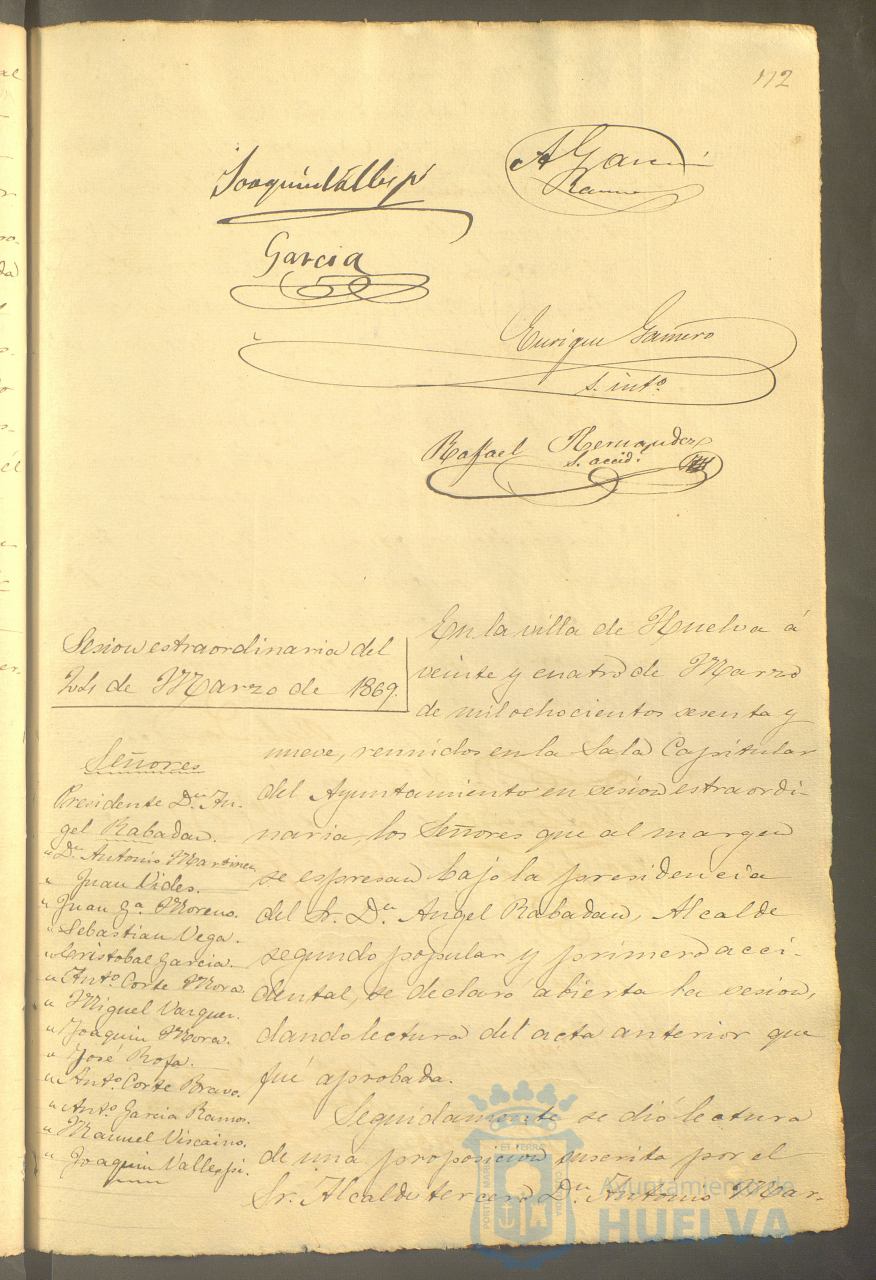 112
Joaquin Vallespi
A Garcia
Ramos
Garcia
Enrique Gamero
s. intº
Rafael Hernandez
s. accid.
Sesion estraordinaria del
24 de Marzo de 1869.
Señores
Presidente Dn. An-
gel Rabadan.
" Dn. Antonio Martinez
" Juan Vides.
" Juan Ga. Moreno.
" Sebastian Vega.
" Cristobal Garcia.
" Anto. Corte Mora
" Miguel Vazquez.
" Joaquin Mora.
" José Rofa.
" Anto. Corte Bravo.
" Anto. Garcia Ramos.
" Manuel Viscaino.
" Joaquin Vallespi.
En la villa de Huelva á
veinte y cuatro de Marzo
de mil ochocientos sesenta y
nueve, reunidos en la Sala Capitular
del Ayuntamiento en sesion estraordi-
naria, los Señores que al margen
se espresan bajo la presidencia
del Sr. Dn. Angel Rabadan, Alcalde
segundo popular y primero acci-
dental, se declaró abierta la sesion,
dando lectura del acta anterior que
fué aprobada.
Seguidamente se dió lectura
de una proposicion suscrita por el
Sr. Alcalde tercero Dn. Antonio Mar-
Ayuntamiento de
HUELVA